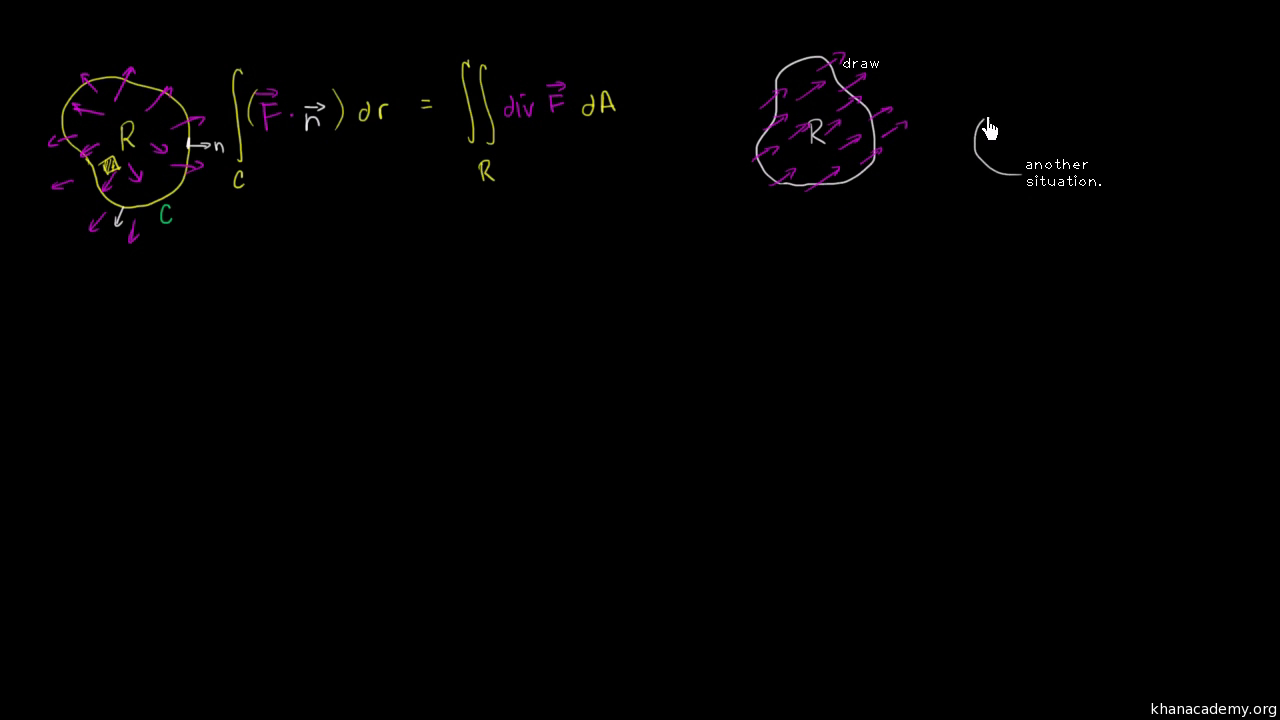 R
n
C
∫_C (F⃗ · n⃗) dr = ∬_R div F⃗ dA
draw
R
another
situation.
khanacademy.org